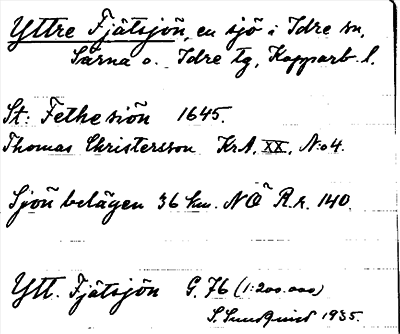 Yttre Fjätsjön, en sjö i Idre sn,
Särna o. Idre tg, Kopparb. l.
St: Fethesiön 1645.
Thomas Christersson KrA, XX, N:o 4.
Sjön belägen 36 km. NÖ R.r. 140.
Ytt. Fjätsjön G. 76 (1:200.000)
S. Sundquist 1935.